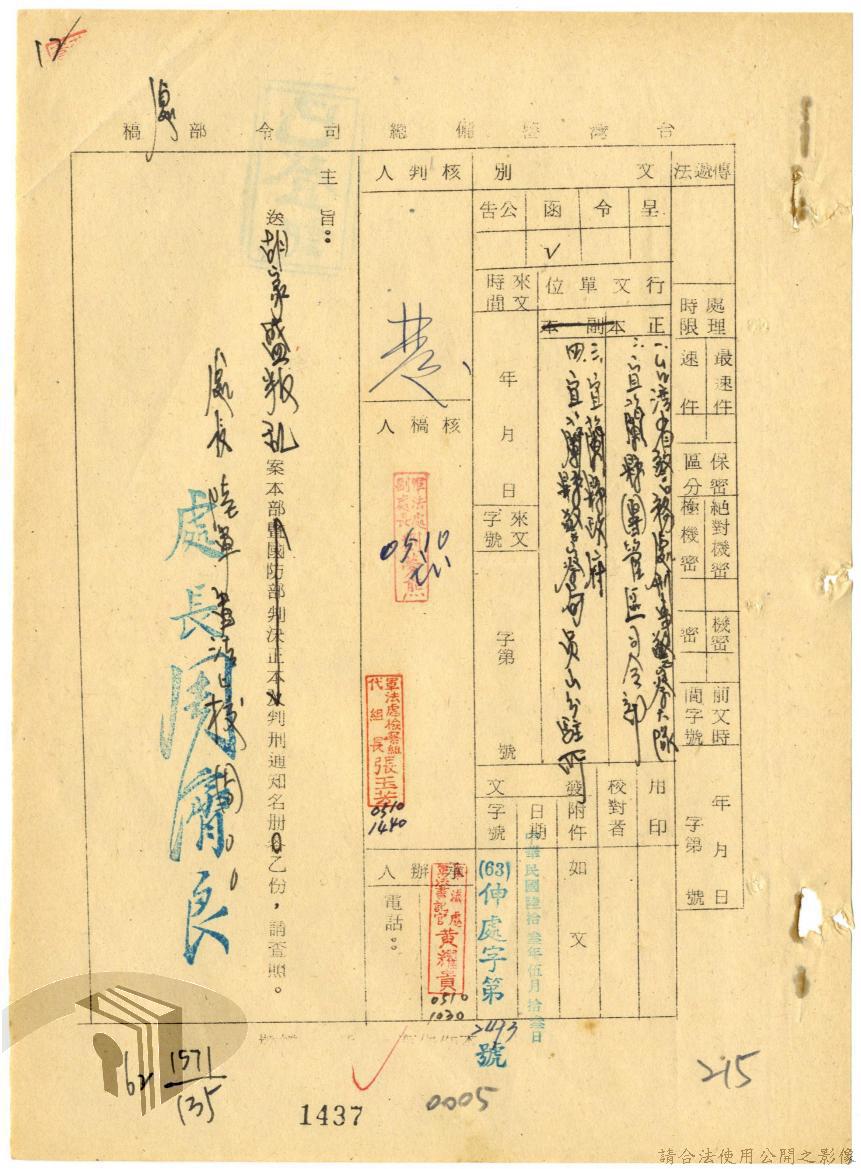 台灣警備總司令部稿
傳遞法
處理時限
最速件
速件
保密區分
絕對機密
極機密
機密
密
前文時間字號
年月日
字第 號
文別
呈
令
函
公告
行文單位
來文時間
正本
副本
一、台灣省警務處刑警大隊
二、宜蘭縣團管區司令部
三、宜蘭縣政府
四、宜蘭縣警察局員山分駐所
年月日
來文字號
字第 號
用印
校對者
發文
附件
如文
日期
中華民國陸拾叁年伍月拾叁日
字號
(63)伸處字第2493號
核判人
核稿人
軍法處副處長
0510
軍法處檢察組代組長張玉芳
0510
1440
承辦人
軍法處
軍法書記官
黃耀貴
0510
1030
電話：
主旨：
送胡家盛叛亂案本部暨國防部判決正本及判刑通知名冊各乙份，請查照。
處長
處長周霽良
17
1571
135
1437
0005
215
請合法使用公開之影像